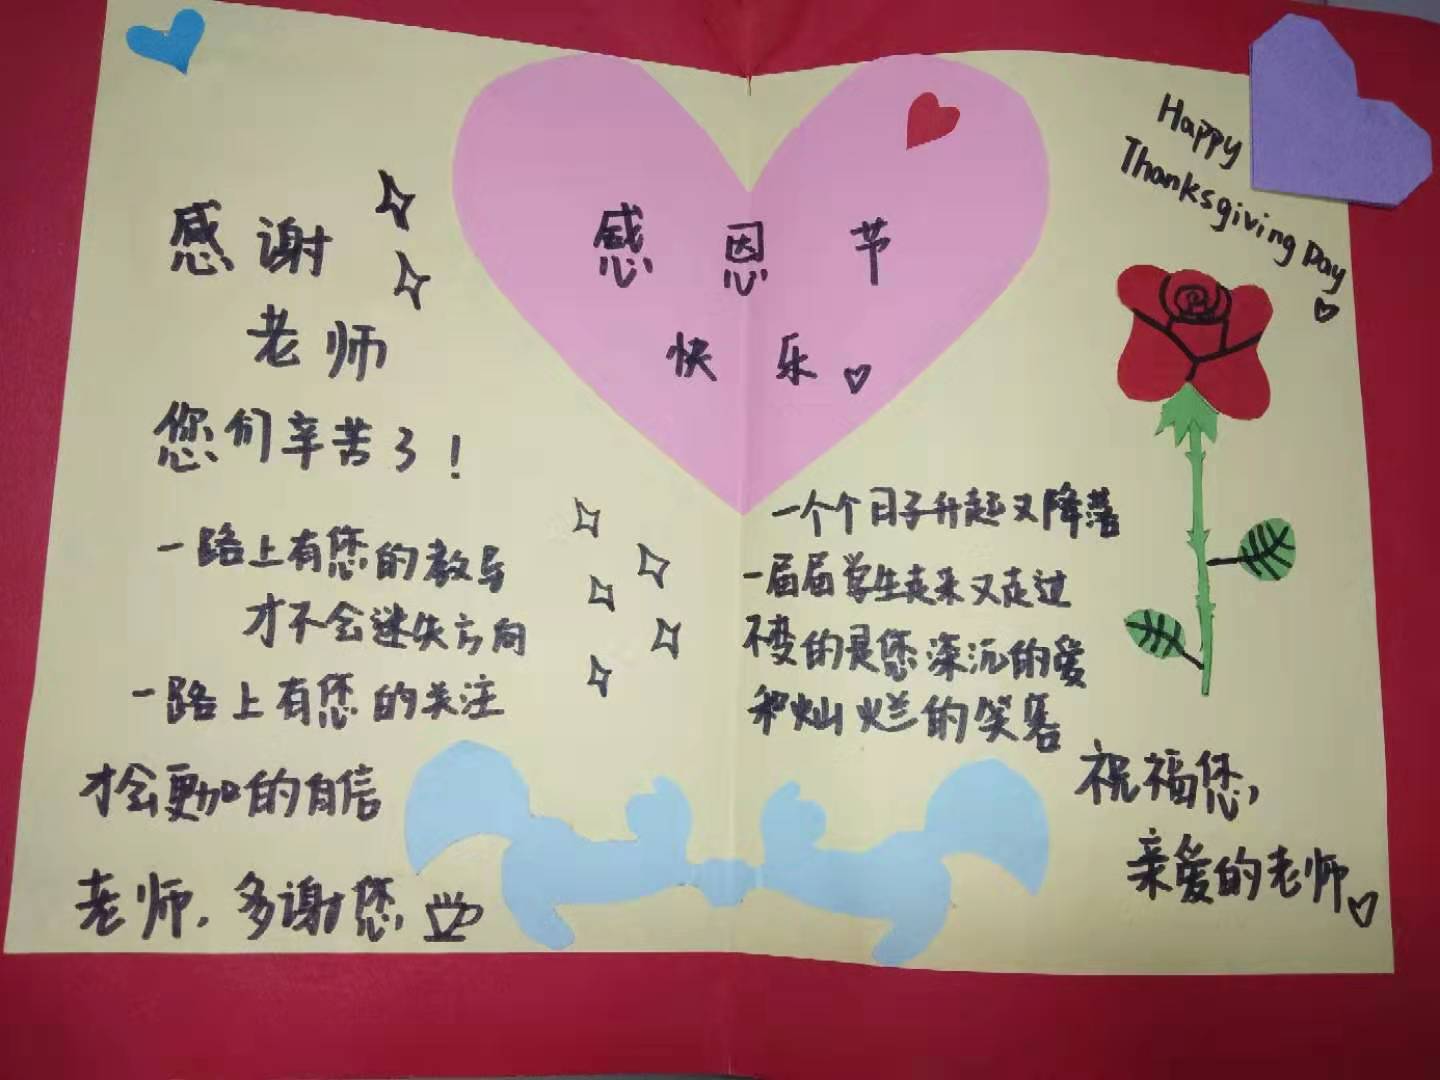 感谢
老师
您们辛苦了!
一路上有您的教导
才不会迷失方向
一路上有您的关注
才会更加的自信
老师,多谢您
感恩节
快乐
Happy
Thanksgiving Day
一个个日子升起又降落
一届届学生走来又走过
不变的是您深沉的爱
和灿烂的笑容
祝福您,
亲爱的老师